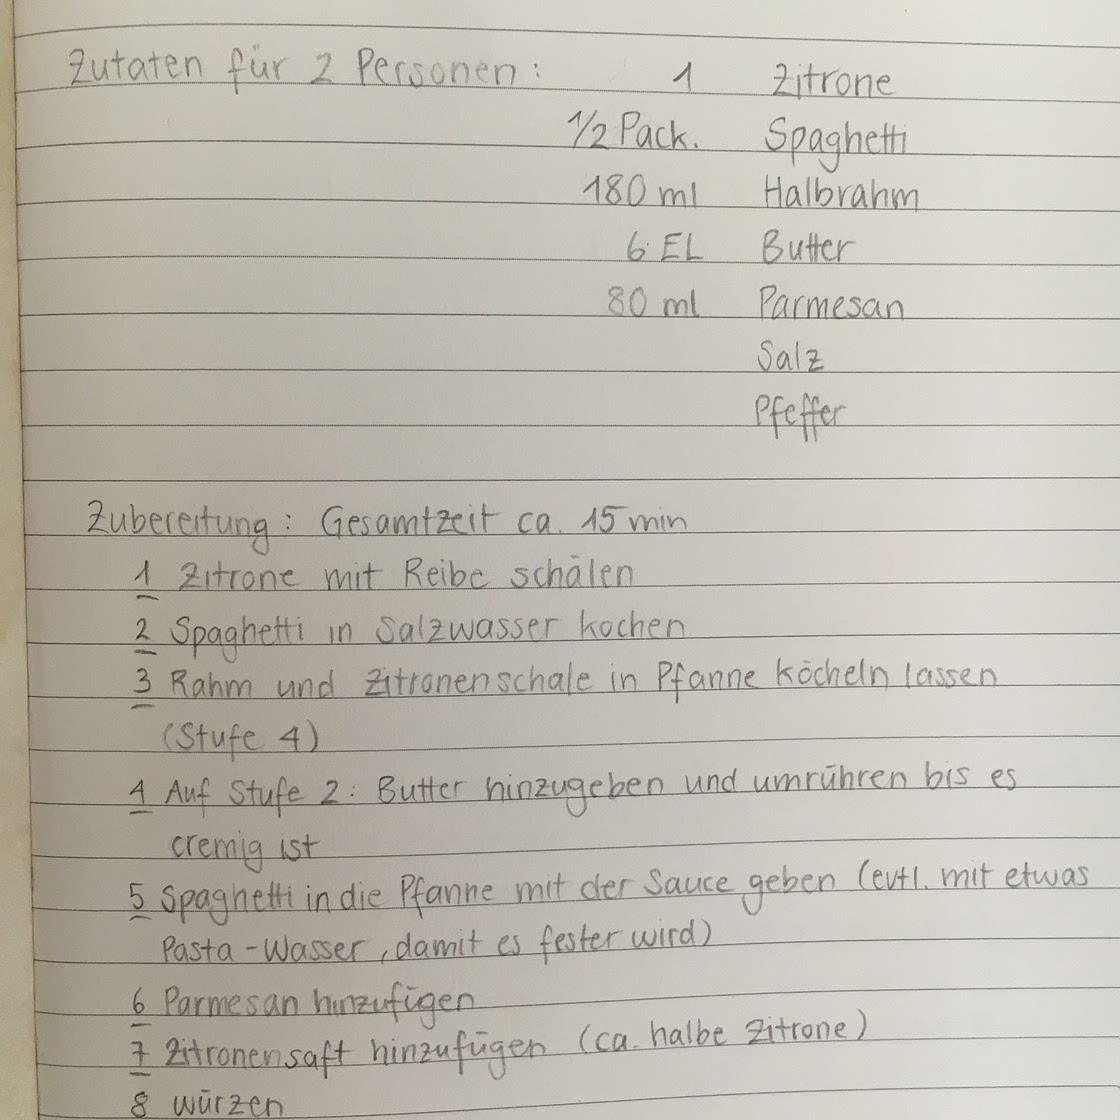 Zutaten für 2 Personen: 1 Zitrone
1/2 Pack. Spaghetti
180 ml Halbrahm
6 EL Butter
80 ml Parmesan
Salz
Pfeffer
Zubereitung: Gesamtzeit ca. 15 min
1 Zitrone mit Reibe schälen
2 Spaghetti in Salzwasser kochen
3 Rahm und Zitronenschale in Pfanne köcheln lassen
(Stufe 4)
4 Auf Stufe 2: Butter hinzugeben und umrühren bis es
cremig ist
5 Spaghetti in die Pfanne mit der Sauce geben (evtl. mit etwas
Pasta-Wasser, damit es fester wird)
6 Parmesan hinzufügen
7 Zitronensaft hinzufügen (ca. halbe Zitrone)
8 würzen